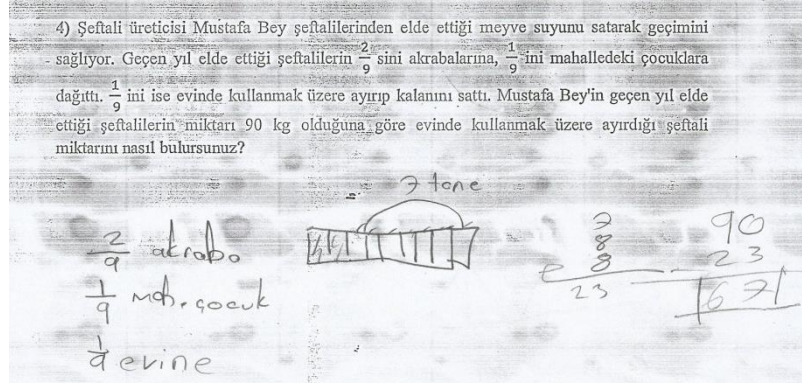 4) Şeftali üreticisi Mustafa Bey şeftalilerinden elde ettiği meyve suyunu satarak geçimini
sağlıyor. Geçen yıl elde ettiği şeftalilerin 2/9 sini akrabalarına, 1/9 ini mahalledeki çocuklara
dağıttı. 1/9 ini ise evinde kullanmak üzere ayırıp kalanını sattı. Mustafa Bey'in geçen yıl elde
ettiği şeftalilerin miktarı 90 kg olduğuna göre evinde kullanmak üzere ayırdığı şeftali
miktarını nasıl bulursunuz?
7 tane
2/9 akraba
1/9 mah. çocuk
1/9 evine
7
8
8
23
90
23
67